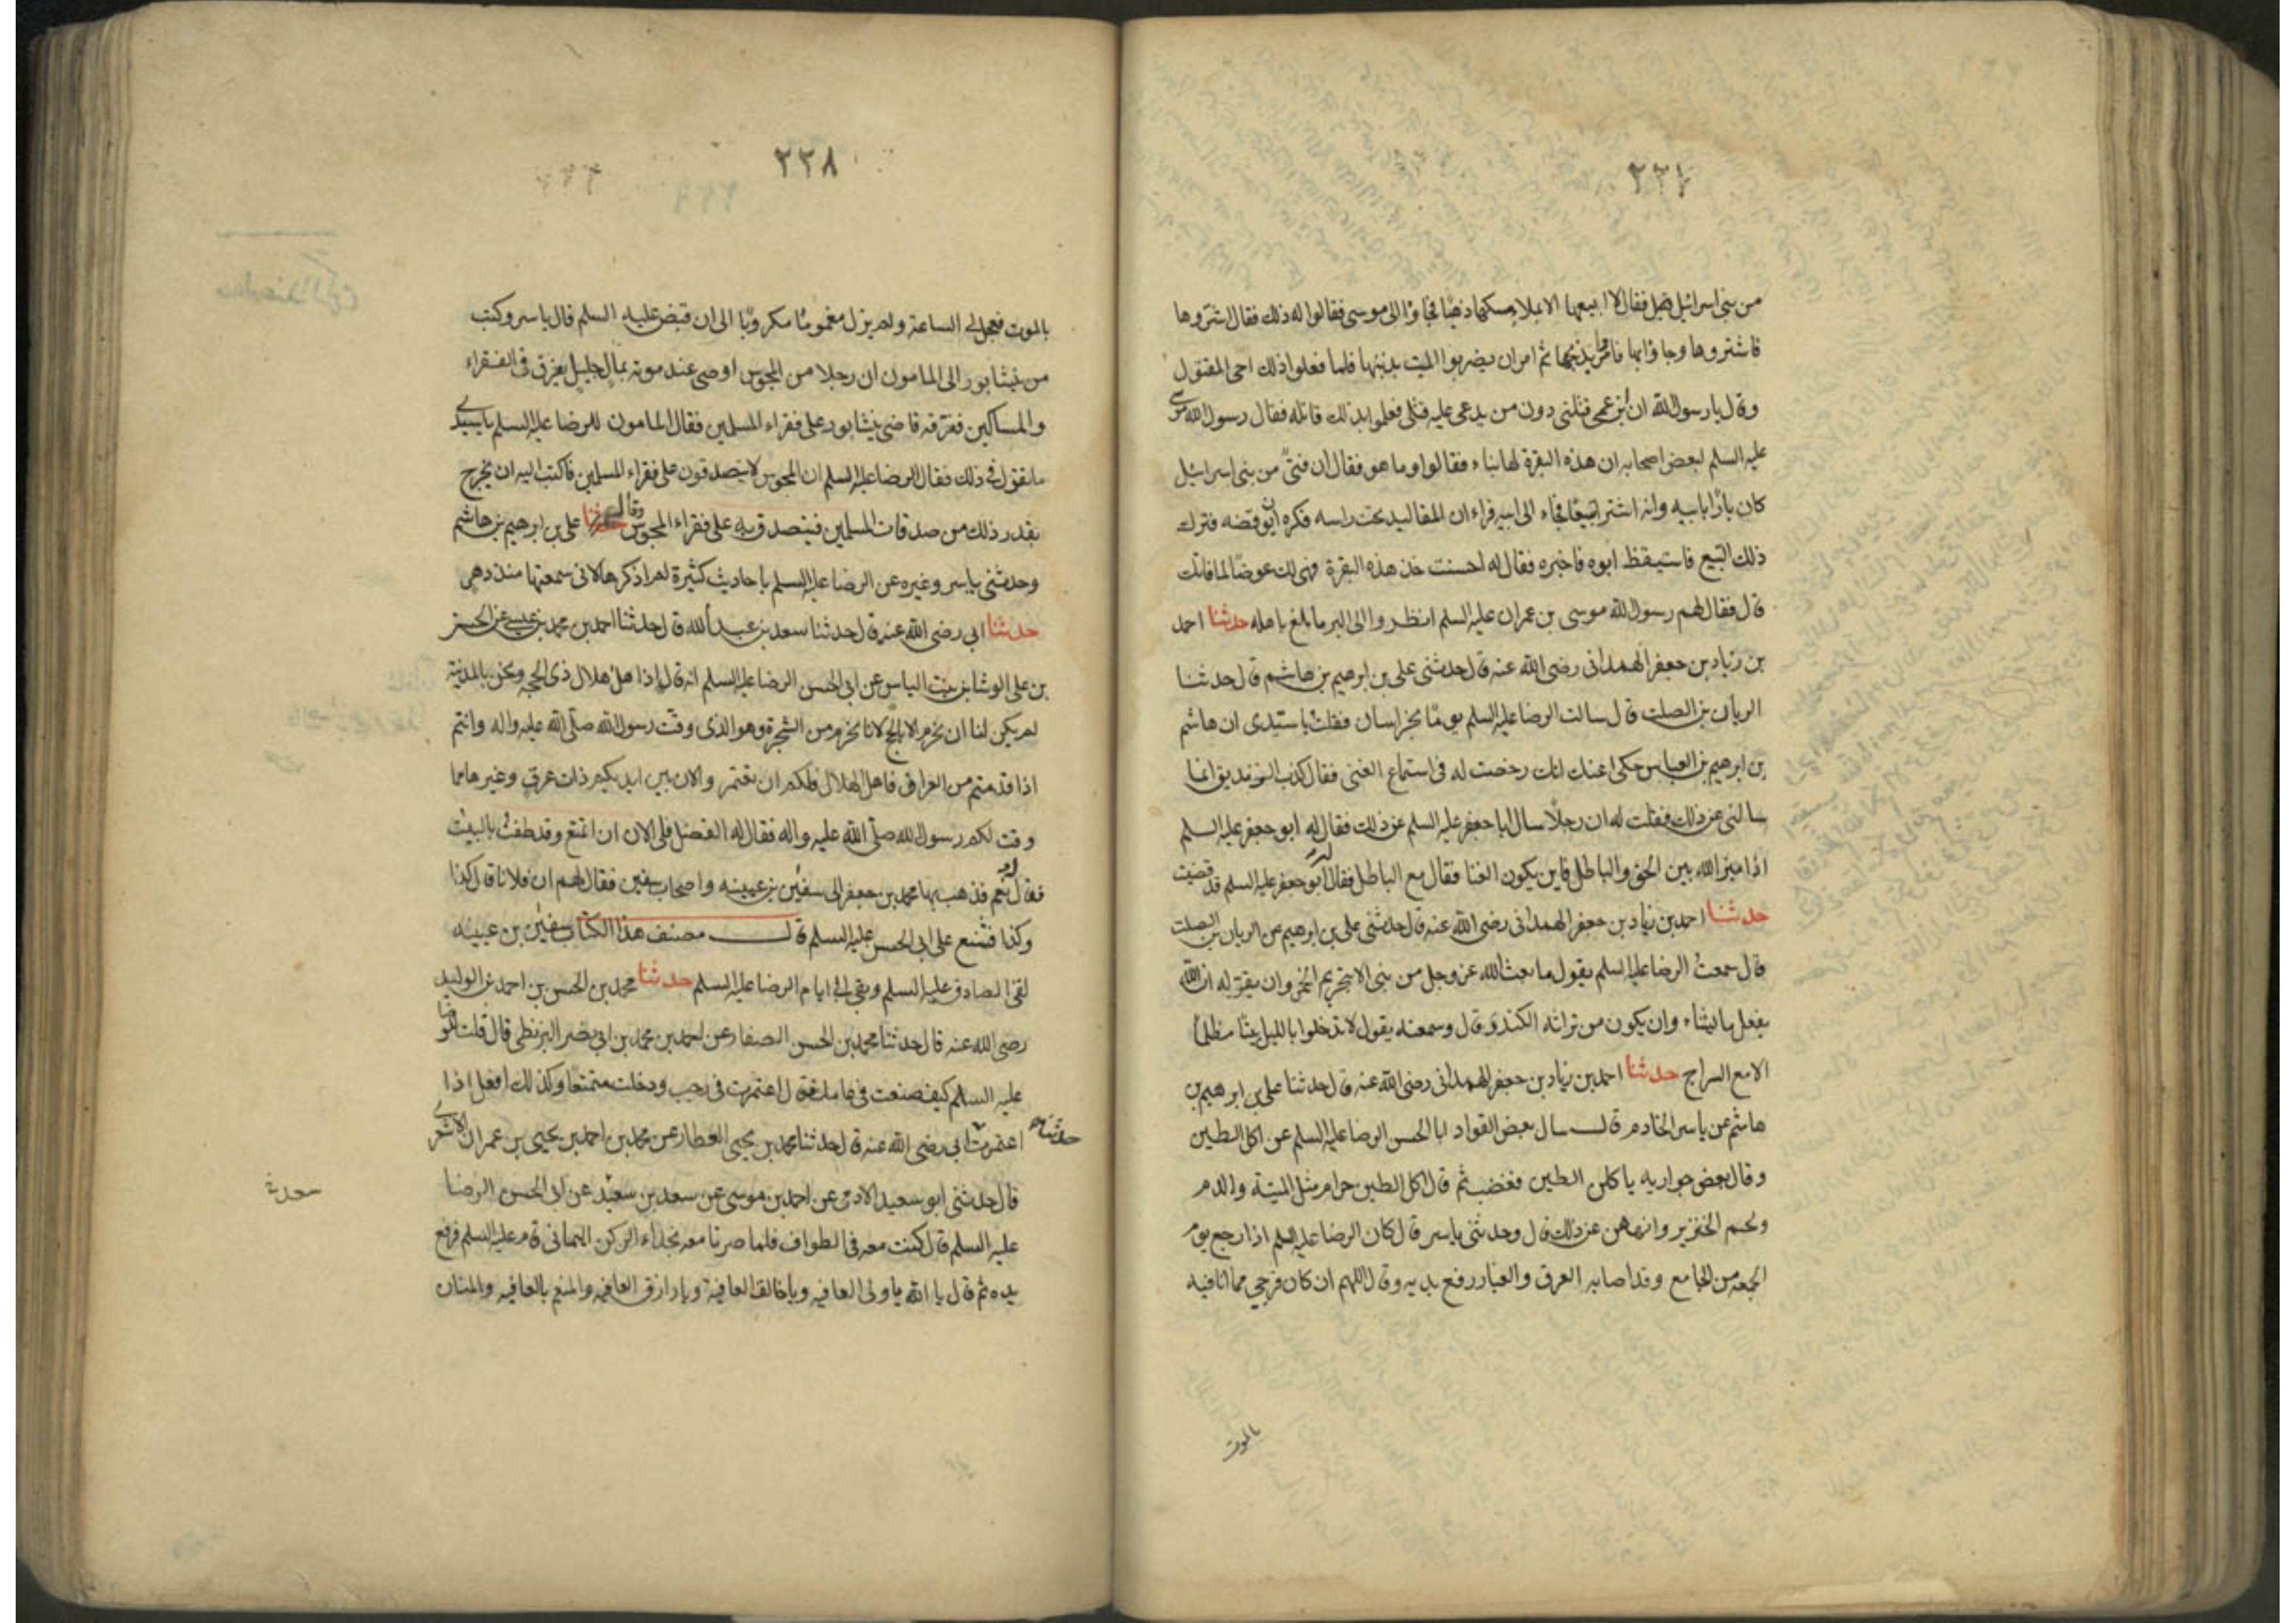 ٢٢٧
من بنى اسرائيل قيل فقال لا ابيعها الا بملاء مسكها ذهبا فجاؤا الى موسى فقالوا له ذلك فقال اشتروها
فاشتروها وجاؤا بها فامر بذبحها ثم امر ان يضربوا الميت بذنبها فلما فعلوا ذلك احى المقتول
وقال يا رسول الله ان ابن عمى قتلنى دون من يدعى عليه قتلى فعلموا بذلك قاتله فقال رسول الله موسى
عليه السلم لبعض اصحابه ان هذه البقرة لها نباء فقالوا وما هو فقال ان فتى من بنى اسرائيل
كان بارا بابيه وانه اشترى تبيعا فجاء الى ابيه فراى ان المقاليد تحت راسه فكره ان يوقضه فترك
ذلك التبيع فاستيقظ ابوه فاخبره فقال له احسنت خذ هذه البقرة فهى لك عوضا لما فاتك
قال فقال لهم رسول الله موسى بن عمران عليه السلم انظروا الى البر ما بلغ باهله حدثنا احمد
بن زياد بن جعفر الهمدانى رضى الله عنه قال حدثنى على بن ابرهيم بن هاشم قال حدثنا
الريان بن الصلت قال سالت الرضا عليه السلم يوما بخراسان فقلت يا سيدى ان هاشم
بن ابرهيم بن العباس حكى عنك انك رخصت له فى استماع الغنى فقال كذب الزنديق انما
سالنى عن ذلك فقلت له ان رجلا سال ابا جعفر عليه السلم عن ذلك فقال له ابو جعفر عليه السلم
اذا ميز الله بين الحق والباطل فاين يكون الغنا فقال مع الباطل فقال له ابو جعفر عليه السلم قد قضيت
حدثنا احمد بن زياد بن جعفر الهمدانى رضى الله عنه قال حدثنى على بن ابرهيم عن الريان بن الصلت
قال سمعت الرضا عليه السلم يقول ما بعث الله عز وجل من بنى الا بتحريم الخمر وان يقر له ان الله
يفعل ما يشاء وان يكون من تراثه الكندر وقال وسمعته يقول لا تدخلوا بالليل بيتا مظلما
الا مع السراج حدثنا احمد بن زياد بن جعفر الهمدانى رضى الله عنه قال حدثنا على بن ابرهيم بن
هاشم عن ياسر الخادم قال سال بعض القواد ابا الحسن الرضا عليه السلم عن اكل الطين
وقال بعض جواريه ياكلن الطين فغضب ثم قال اكل الطين حرام مثل الميتة والدم
ولحم الخنزير وانههن عن ذلك قال وحدثنى ياسر قال كان الرضا عليه السلم اذا رجع يوم
الجمعه من الجامع وقد اصابه العرق والغبار رفع يديه وقال اللهم ان كان فرجى مما انا فيه
بالموت
٢٢٨
بالموت فعجل لى الساعة ولم يزل مغموما مكروبا الى ان قبض عليه السلم قال ياسر وكتب
من نيشابور الى المامون ان رجلا من المجوس اوصى عند موته بمال جليل يفرق فى الفقراء
والمساكين ففرقه قاضى نيشابور على فقراء المسلمين فقال المامون للرضا عليه السلم يا سيدى
ما تقول فى ذلك فقال الرضا عليه السلم ان المجوس لا يتصدقون على فقراء المسلمين فاكتب اليه ان يخرج
بقدر ذلك من صدقات المسلمين فيتصدق به على فقراء المجوس وقال حدثنا على بن ابرهيم بن هاشم
وحدثنى ياسر وغيره عن الرضا عليه السلم باحاديث كثيرة لم اذكرها لانى سمعتها منذ دهر
حدثنا ابى رضى الله عنه قال حدثنا سعد بن عبد الله قال حدثنا احمد بن محمد بن عيسى عن الحسن
بن على الوشا بن بنت الياس عن ابى الحسن الرضا عليه السلم انه قال اذا هل هلال ذى الحجه ونحن بالمدينة
لم يكن لنا ان نحرم الا بالحج لانا نحرم من الشجرة وهو الذى وقت رسول الله صلى الله عليه واله وانتم
اذا قدمتم من العراق فاهل الهلال فلكم ان تعتمروا لان بين ايديكم ذات عرق وغيرها مما
وقت لكم رسول الله صلى الله عليه واله فقال له الفضل فلى الان ان اتمتع وقد طفت بالبيت
فقال له نعم فذهب بها محمد بن جعفر الى سفين بن عيينه واصحاب سفين فقال لهم ان فلانا قال كذا
وكذا فشنع على ابى الحسن عليه السلم قال مصنف هذا الكتاب سفين بن عيينه
لقى الصادق عليه السلم وبقى الى ايام الرضا عليه السلم حدثنا محمد بن الحسن بن احمد بن الوليد
رضى الله عنه قال حدثنا محمد بن الحسن الصفار عن احمد بن محمد بن ابى نصر البزنطى قال قلت للرضا
عليه السلم كيف صنعت فى عامك فقال اعتمرت فى رجب ودخلت متمتعا وكذلك افعل اذا
اعتمرت حدثنا ابى رضى الله عنه قال حدثنا محمد بن يحيى العطار عن محمد بن احمد بن يحيى بن عمران الاشعرى
قال حدثنى ابو سعيد الادمى عن احمد بن موسى عن سعد بن سعيد عن ابى الحسن الرضا
عليه السلم قال كنت معه فى الطواف فلما صرنا معه بحذاء الركن اليمانى قام عليه السلم فرفع
يده ثم قال يا الله يا ولى العافيه ويا خالق العافية ويا رازق العافيه والمنعم بالعافيه والمنان